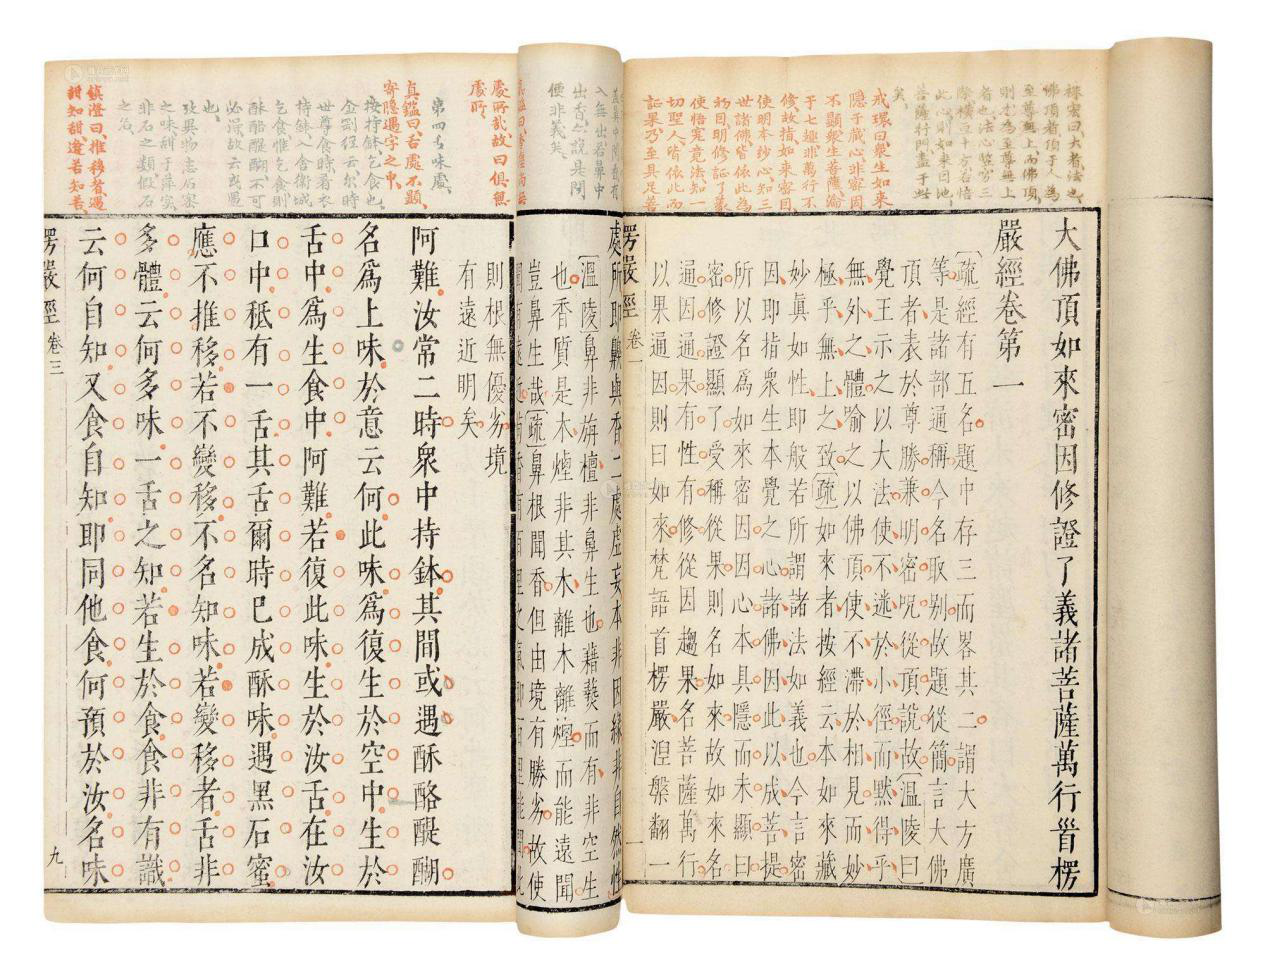 祩宏曰大者法也
佛頂者頂于人為
至尊無上而佛頂
則尤為至尊無上
者也法心竪窮三
際橫亘十方名悟
此心則如來因地
菩薩行門盡于此
矣
戒環曰衆生如来
隱于藏心非密因
不顯般生菩薩淪
于七趣非萬行不
修故指如来密因
使明本妙心知三
世諸佛皆依此為
初目明修証了義
使悟寔竟法知一
切聖人皆依此而
証果乃至具足菩
大佛頂如來密因修證了義諸菩薩萬行首楞
嚴經卷第一
疏經有五名題中存三而畧其二謂大方廣
等是諸部通稱今名取别故題從簡言大佛
頂者表於尊勝兼明密呪從頂說故溫陵曰
覺王示之以大法使不迷於小徑而黙得乎
無外之體喻之以佛頂使不滯於相見而妙
極乎無上之致疏如來者按經云本如來藏
妙眞如性即般若所謂諸法如義也今言密
因即指衆生本覺之心諸佛因此以成菩提
所以名為如來密因因心本具隱而未顯曰
密修證顯了受稱從果則名如來故如來名
通因通果有性有修從因趨果名菩薩萬行
以果通因則曰如來梵語首楞嚴涅槃翻一
楞嚴經 卷一 一
入無出若鼻中
出香怎說具聞
便非義矣
處所即鼻與香二處虛妄本非因緣非自然性
溫陵鼻非旃檀非鼻生也藉爇而有非空生
也香質是木煙非其木離木離煙而能遠聞
豈鼻生哉疏鼻根聞香但由境有勝劣故使
處所哉故曰俱無
處所
第四舌味處
真鑑曰舌處不顯
寄隱遇字之中
按持鉢乞食也
金剛經云尒時
世尊食時着衣
持鉢入舍衛城
乞食惟乞食則
酥酪醍醐不可
必得故云或遇
也
玫異物志石蜜
之味甜于萍实
非石之類假石
之名
鎮澄曰推移者遇
甜知甜遵若知苦
則根無優劣境
有遠近明矣
阿難汝常二時衆中持鉢其間或遇酥酪醍醐
名爲上味於意云何此味爲復生於空中生於
舌中爲生食中阿難若復此味生於汝舌在汝
口中秪有一舌其舌爾時已成酥味遇黑石蜜
應不推移若不變移不名知味若變移者舌非
多體云何多味一舌之知若生於食食非有識
云何自知又食自知即同他食何預於汝名味
楞嚴經 卷三 九